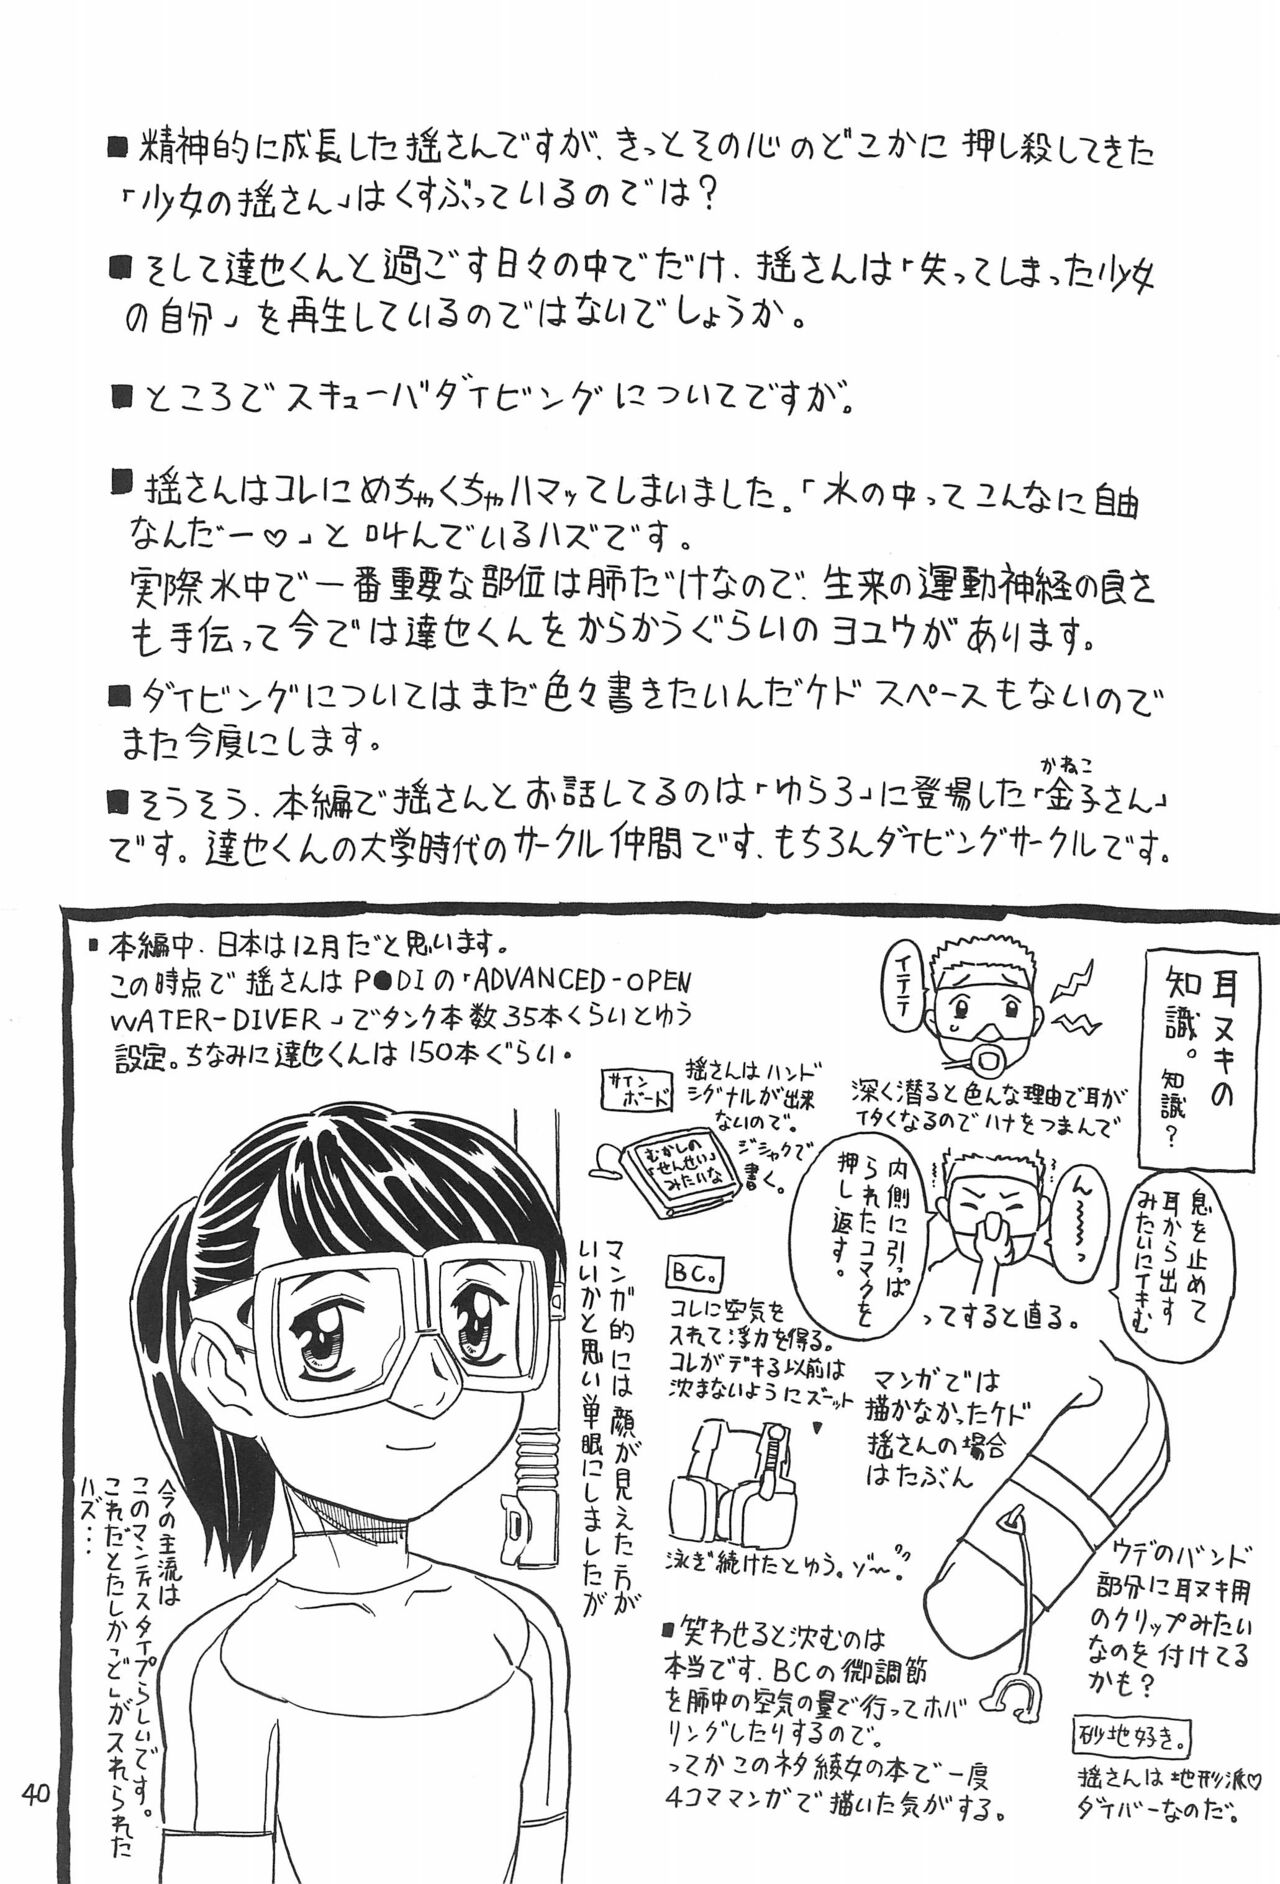 ■精神的に成長した揺さんですが、きっとその心のどこかに押し殺してきた
「少女の揺さん」はくすぶっているのでは？
■そして達也くんと過ごす日々の中でだけ、揺さんは「失ってしまった少女
の自分」を再生しているのではないでしょうか。
■ところでスキューバダイビングについてですが。
■揺さんはコレにめちゃくちゃハマッてしまいました。「水の中ってこんなに自由
なんだー♡」と叫んでいるハズです。
実際水中で一番重要な部位は肺だけなので、生来の運動神経の良さ
も手伝って今では達也くんをからかうぐらいのヨユウがあります。
■ダイビングについてはまだ色々書きたいんだケドスペースもないので
また今度にします。
■そうそう、本編で揺さんとお話してるのは「ゆらろ」に登場した「金子さん」
かねこ
です。達也くんの大学時代のサークル仲間です、もちろんダイビングサークルです。
▪本編中、日本は12月だと思います。
この時点で揺さんはP●DIの「ADVANCED-OPEN
WATER-DIVER」でタンク本数35本くらいとゆう
設定。ちなみに達也くんは150本ぐらい・
耳ヌキの
知識。知識？
イテテ
深く潜ると色んな理由で耳が
イタくなるのでハナをつまんで
息を止めて
耳から出す
みたいにイキむ
ん〜〜〜〜っ
内側に引っぱ
られたコマクを
押し返す。
ってすると直る。
サイン
ボード
揺さんはハンド
シグナルが出来
ないので。
ジシャクで
書く。
むかしの
「せんせい」
みたいな
BC。
コレに空気を
入れて浮力を得る。
コレがデキる以前は
沈まないようにズーット
泳ぎ続けたとゆう。ゾ〜。
マンガでは
描かなかったケド
揺さんの場合
はたぶん
ウデのバンド
部分に耳ヌキ用
のクリップみたい
なのを付けてる
かも？
マンガ的には顔が見えた方が
いいかと思い単眼にしましたが
今の主流は
このマンティスタイプらしいです。
これだとたしか「ど」が入れられた
ハズ・・・
■笑わせると沈むのは
本当です、BCの微調節
を肺中の空気の量で行ってホバ
リングしたりするので。
ってかこのネタ綾女の本で一度
4コママンガで描いた気がする。
砂地好き。
揺さんは地形派♡
ダイバーなのだ。
40